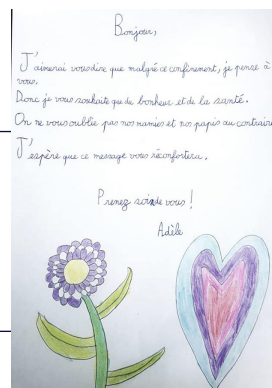 Bonjour,
J'aimerai vous dire que malgré ce confinement, je pense à
vous.
Donc je vous souhaite que du bonheur et de la santé.
On ne vous oublie pas nos mamies et nos papis au contraire
J'espère que ce message vous réconfortera.
Prenez soin de vous !
Adèle